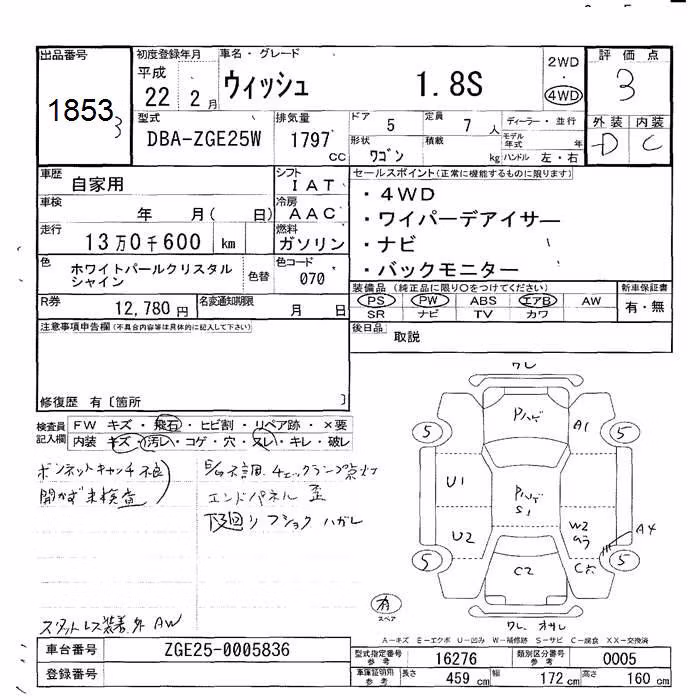 出品番号
1853
3
初度登録年月
平成
22 2月
車名・グレード
ウィッシュ 1.8S
2WD
・
4WD
評価点
3
型式
DBA-ZGE25W
排気量
1797
CC
ドア
5
定員
7 人
形状
ワゴン
積載
kg
ディーラー・並行
モデル
年式 年
ハンドル 左・右
外装 内装
D C
車歴
自家用
シフト
IAT
車検
年 月( 日)
冷房
AAC
走行
13万0千600 km
燃料
ガソリン
色
ホワイトパールクリスタル
シャイン
色替
色コード
070
R券
12,780円
名変通知期限
月 日
セールスポイント(正常に機能するものに限ります)
・4WD
・ワイパーデアイサー
・ナビ
・バックモニター
装備品 (純正品に限り〇をつけてください)
PS PW ABS エアB AW
SR ナビ TV カワ
新車保証書
有・無
後日品
取説
注意事項申告欄(不具合内容等は具体的に記入して下さい)
修復歴 有〔箇所 〕
検査員
記入欄
FW キズ・飛石・ヒビ割・リペア跡・×要
内装 キズ・汚レ・コゲ・穴・スレ・キレ・破レ
ボンネットキャッチ不良
開かず未検査
チェックランプ点灯
エンドパネル 歪
下廻り フショク ハガレ
スタットレス装着 外AW
ワレ
Pハゲ
A1
5
5
U1
Pハゲ
S1
U2
W2
A4
5
5
C2
有
スペア
A-キズ E-エクボ U-凹み W-補修跡 S-サビ C-腐食 XX-交換済
車台番号
ZGE25-0005836
登録番号
型式指定番号
参考
16276
類別区分番号
参考
0005
車庫証明用
参考
長さ
459 cm
幅
172 cm
高さ
160 cm